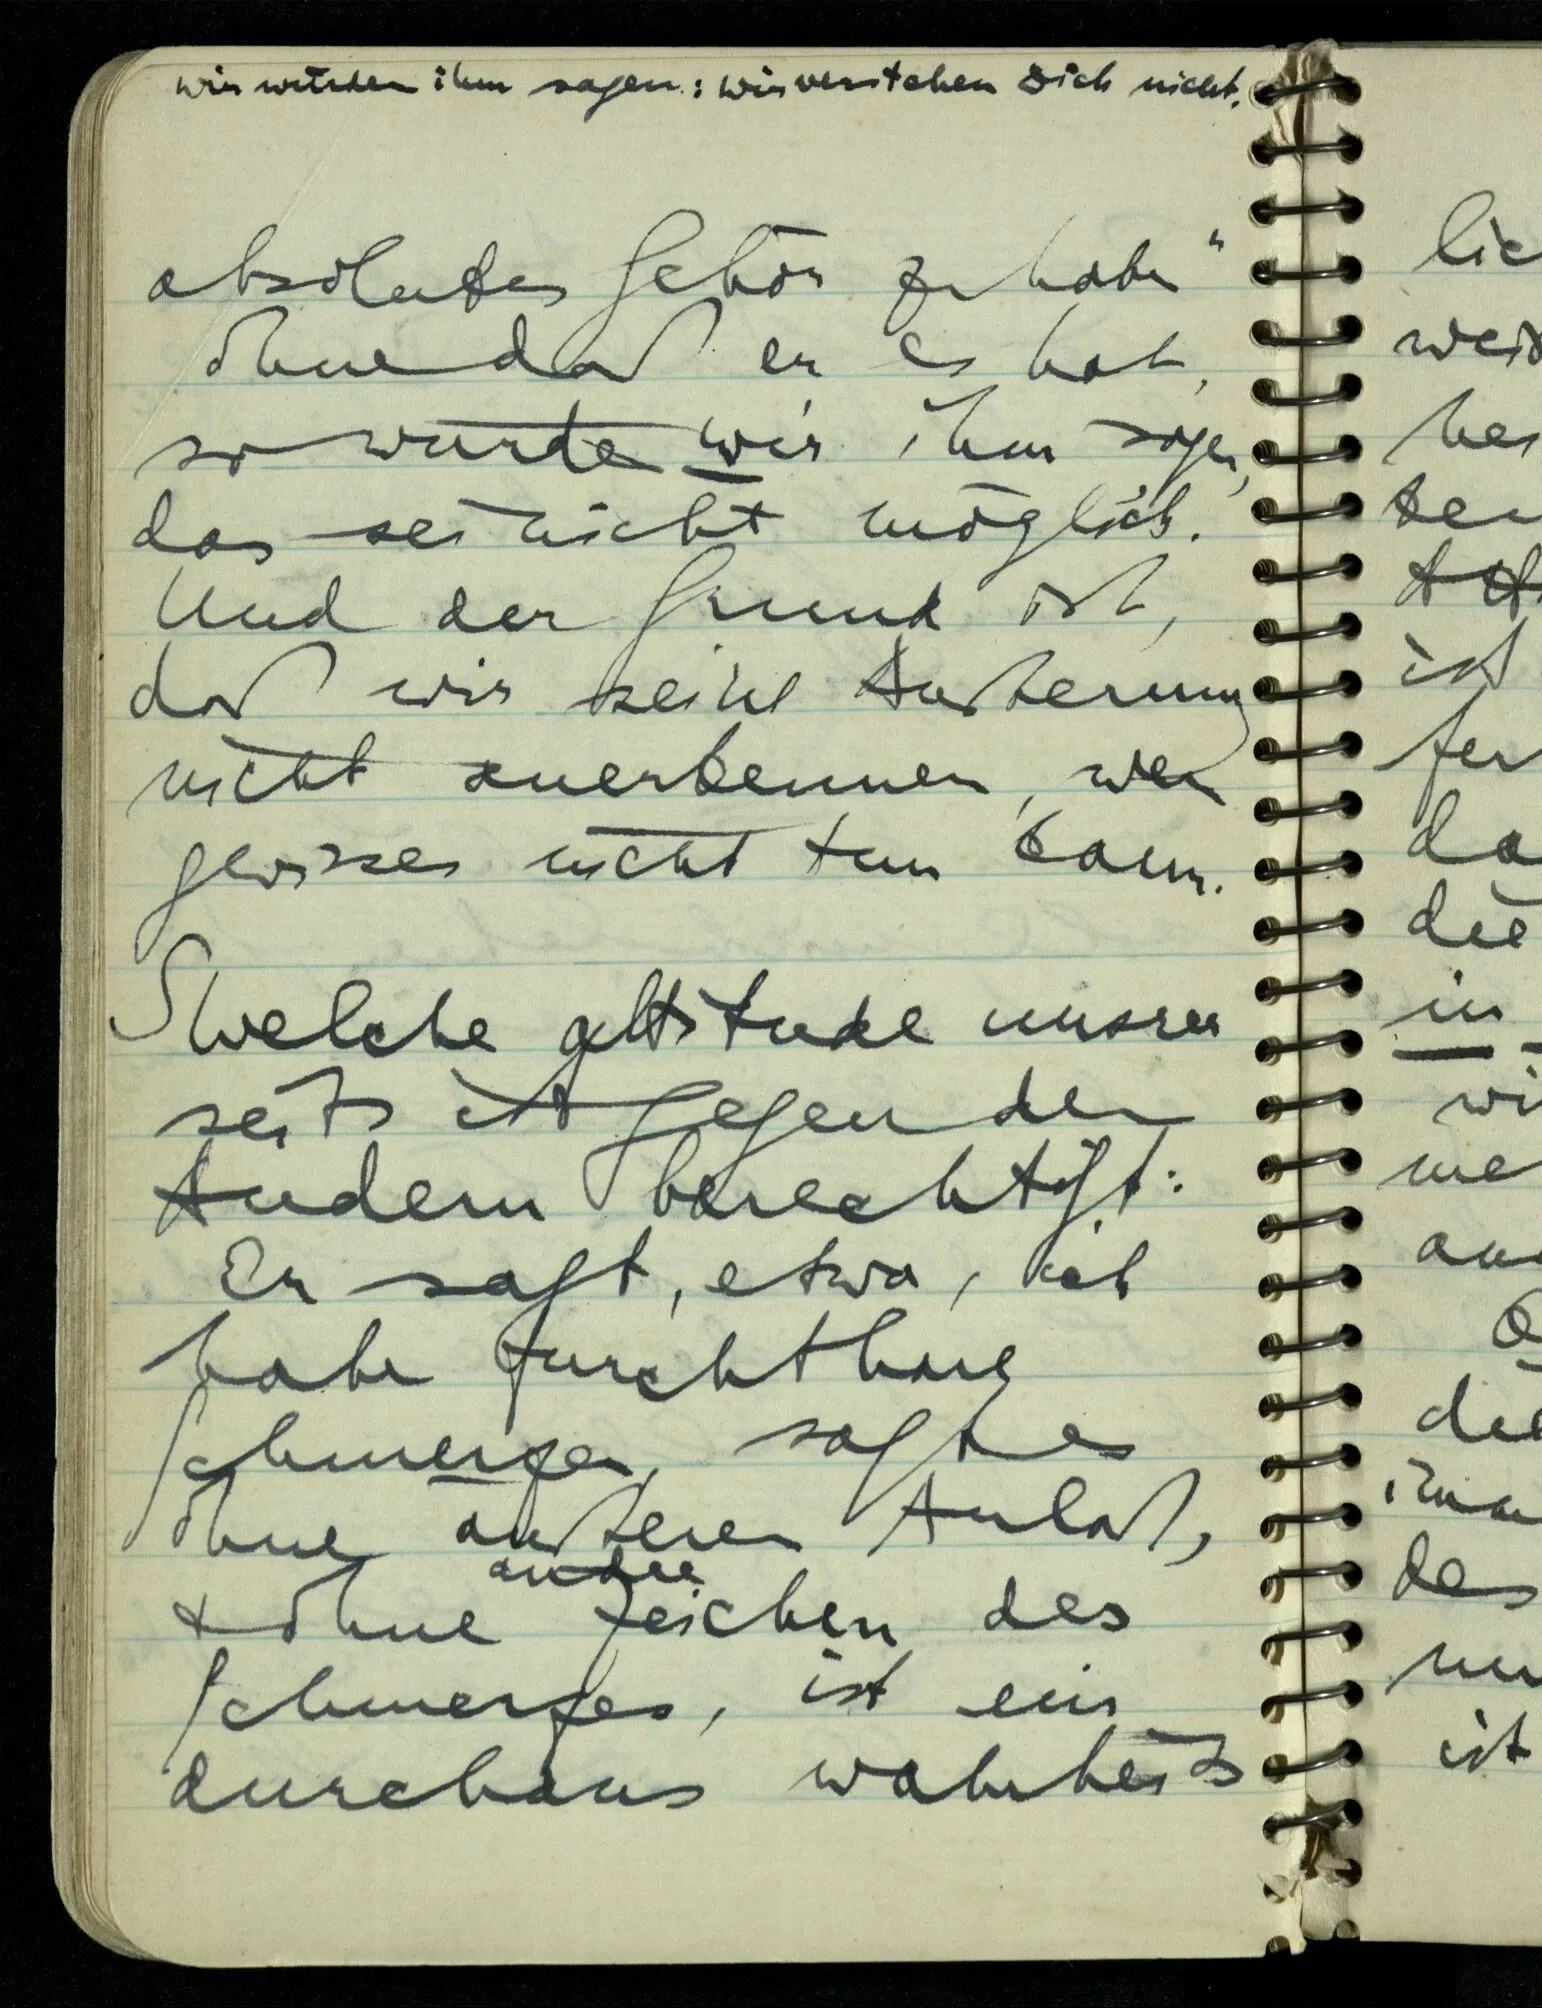 wir würden ihm sagen: wir verstehen Dich nicht.
absolutes Gehör zu haben"
ohne daß er es hat,
so würde wir ihm sagen,
das sei nicht möglich.
Und der Grund ist,
daß wir seine Äußerung
nicht anerkennen, wenn
gewisses nicht tun kann.
S Welche Attitude unsrer
seits ist gegen den
Andern berechtigt:
Er sagt, etwa, ich
habe furchtbare
Schmerzen, sagt es
ohne äußeren Anlaß,
andere
+ ohne Zeichen des
Schmerzes, ist ein
durchaus wahrheits
lic
weiß
bes
ten
ist
fer
da
die
in
wi
me
an
die
imm
des
nu
ist